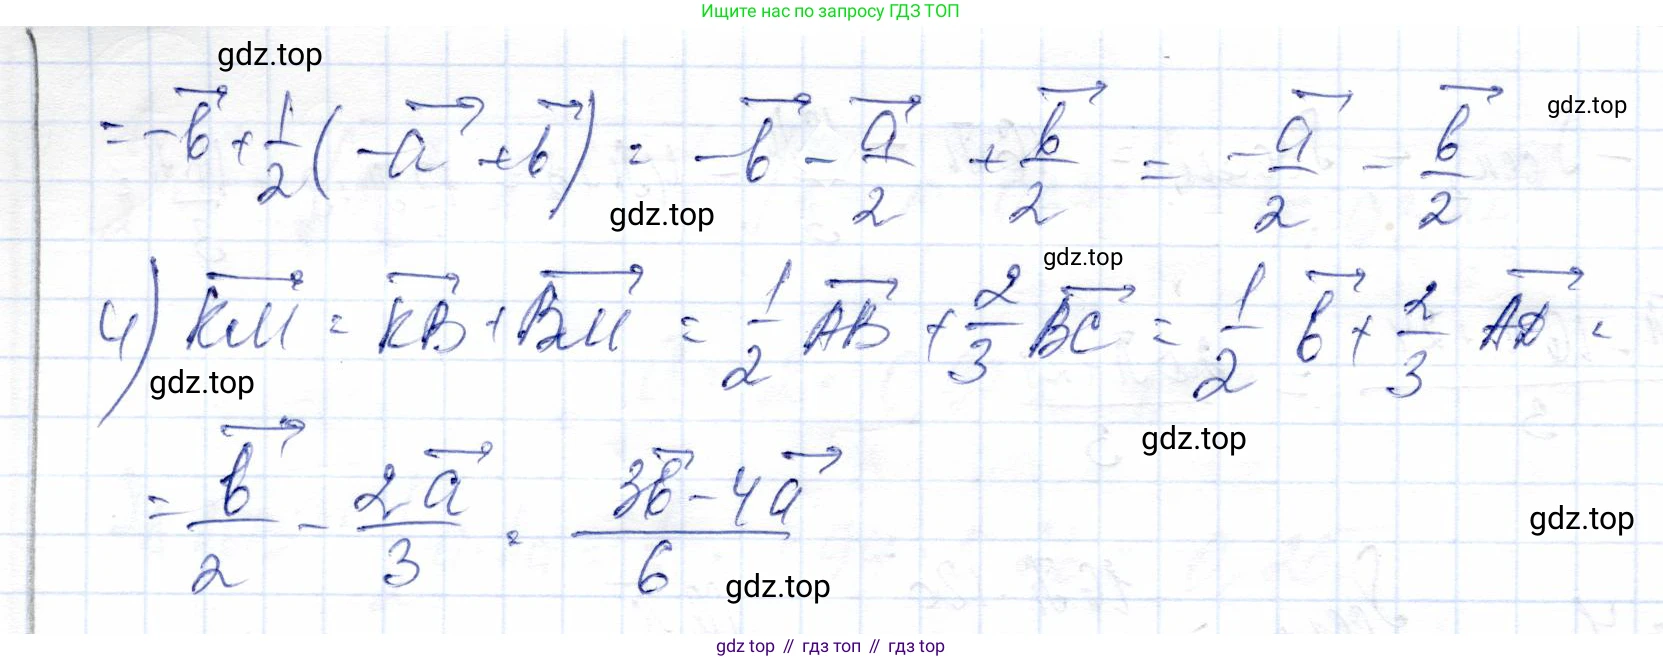 Ищите нас по запросу ГДЗ ТОП
gdz.top
gdz.top
= -b⃗ + 1/2 (-a⃗ + b⃗) = -b⃗ - a⃗/2 + b⃗/2 = -a⃗/2 - b⃗/2
gdz.top
gdz.top
4) KM⃗ = KB⃗ + BM⃗ = 1/2 AB⃗ + 2/3 BC⃗ = 1/2 b⃗ + 2/3 AD⃗ =
gdz.top
gdz.top
= b⃗/2 - 2a⃗/3 = (3b⃗ - 4a⃗)/6
gdz.top
gdz.top
gdz top // гдз топ // гдз top